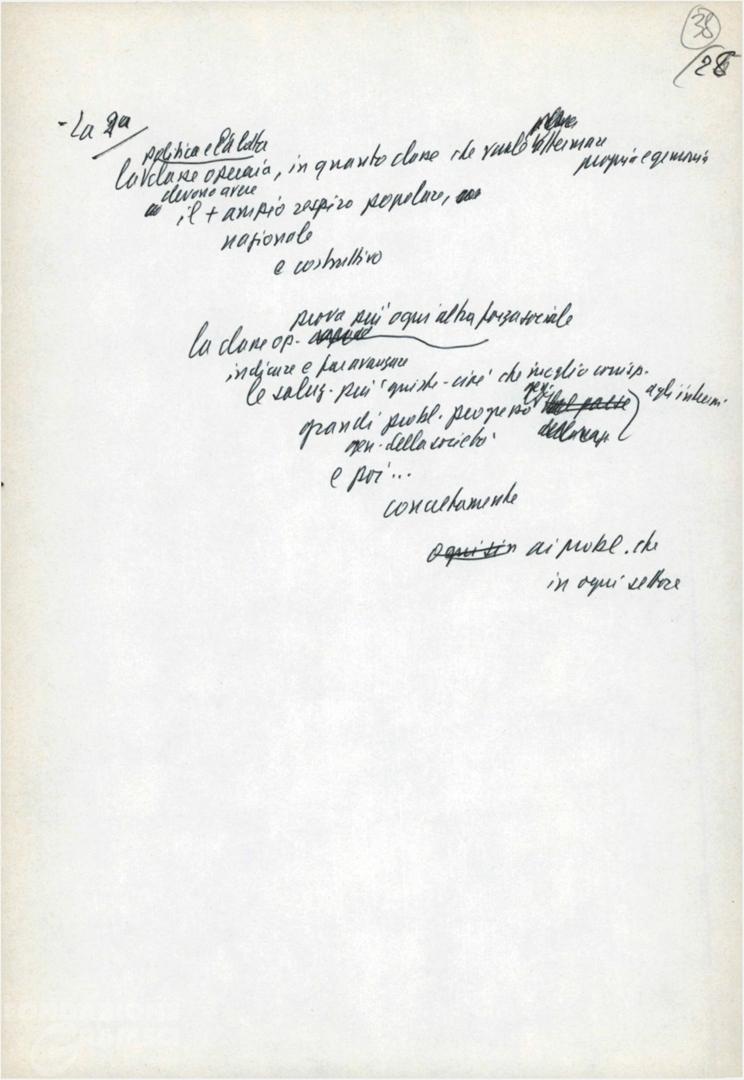 38
28
- La 2a
politica e la lotta
la classe operaia, in quanto classe che vuole affermare
propria egemonia
devono avere
il + ampio respiro popolare,
nazionale
e costruttivo
prova più ogni altra forza sociale
la classe op.
indicare e far avanzare
le soluz. più giuste - cioè che meglio corrisp.
agli interessi
grandi probl. progresso
gen. della società
e poi...
concretamente
ai probl. che
in ogni settore